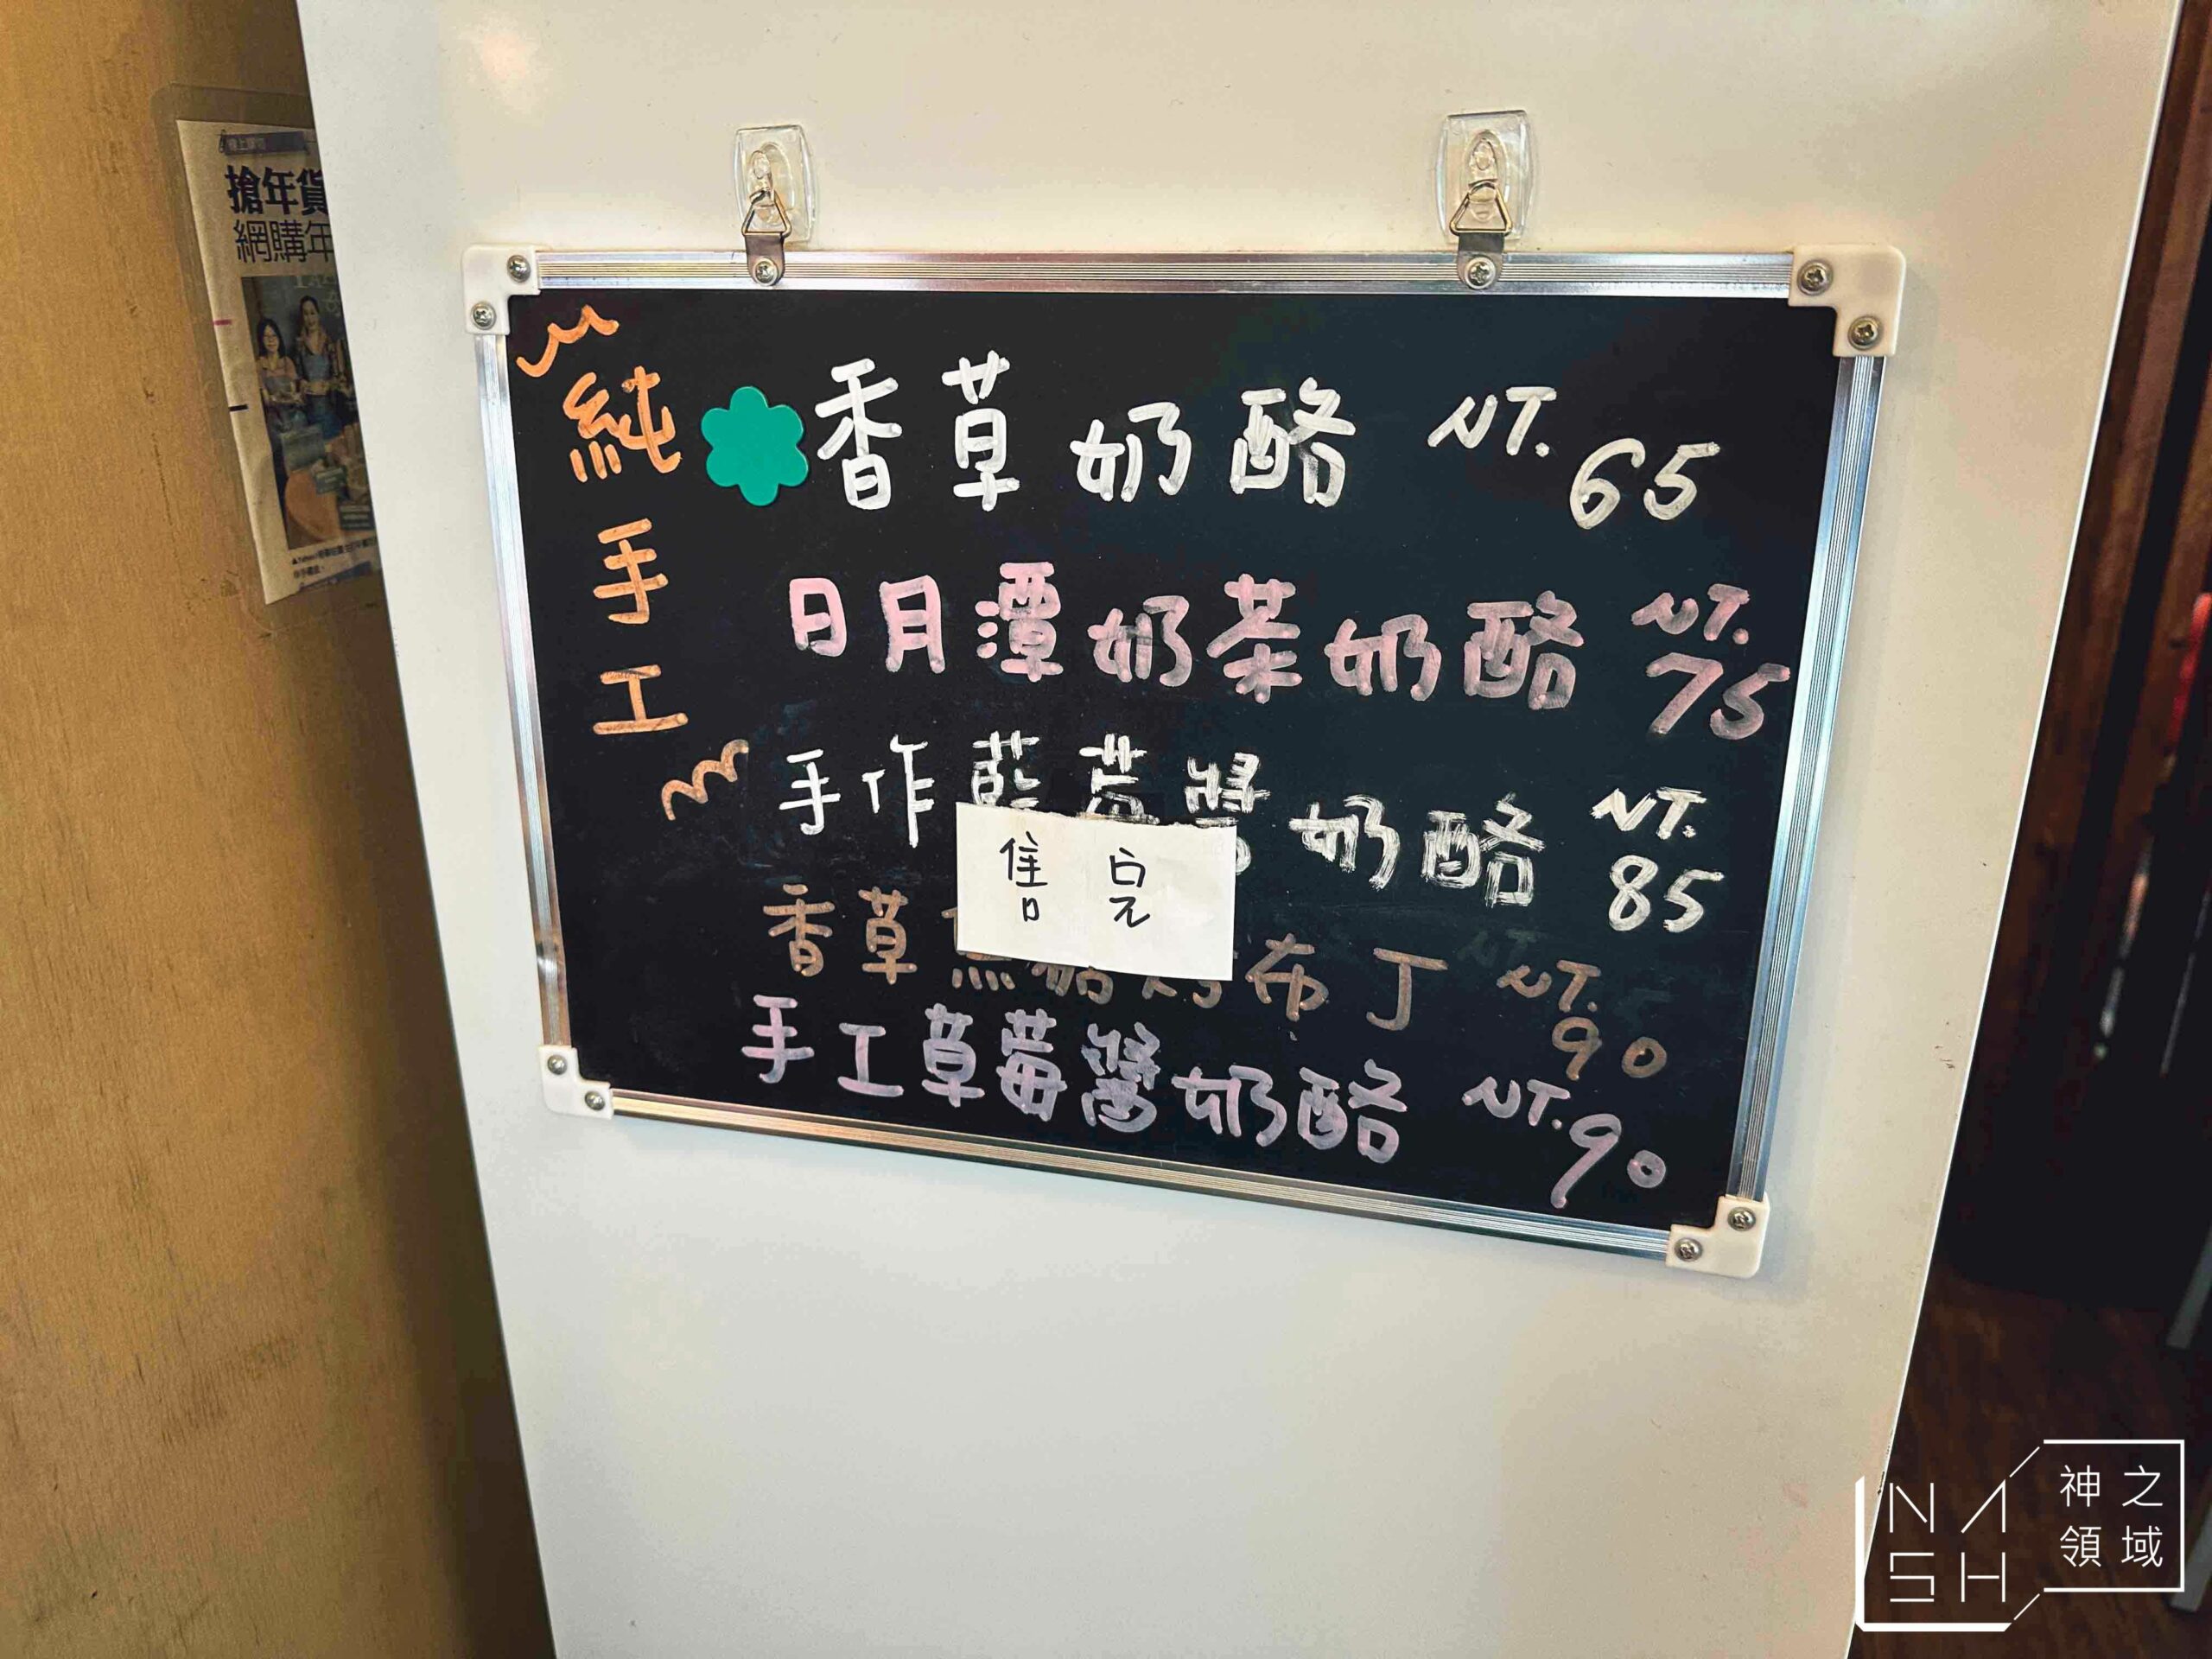 搶年貨
網購年
純手工
香草奶酪 NT. 65
日月潭奶茶奶酪 NT. 75
手作藍莓醬奶酪 NT. 85
售完
香草焦糖烤布丁 NT. 90
手工草莓醬奶酪 NT. 90
NASH
神之領域